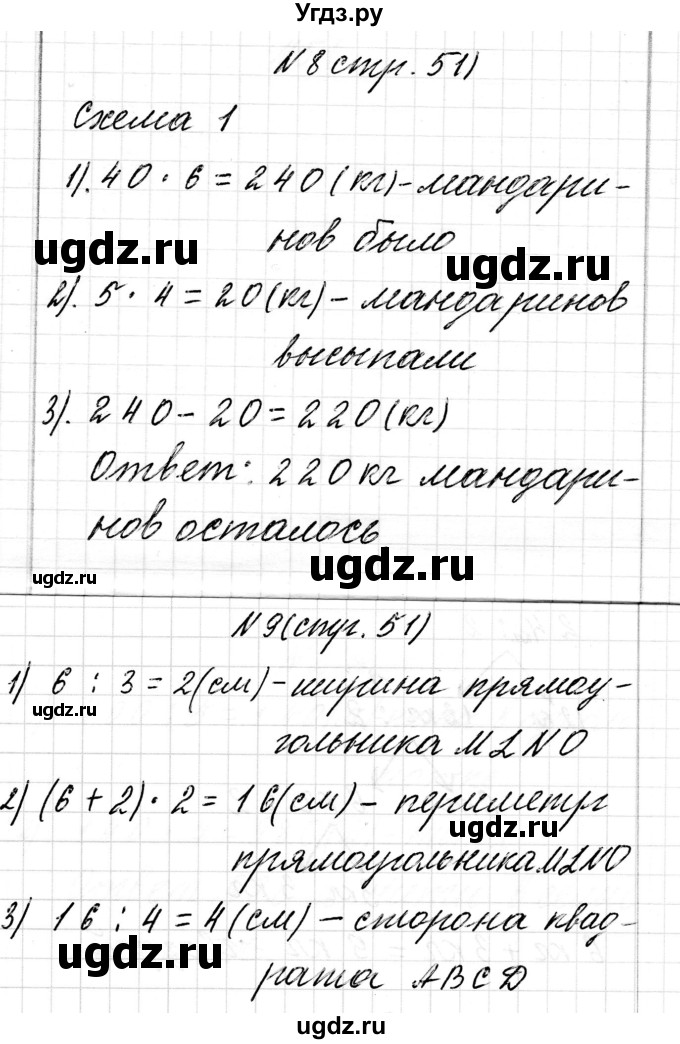 Угдз.ру
N 8 стр. 51)
Схема 1
1). 40 · 6 = 240 (кг) - мандари-
нов было
ugdz.ru
ugdz.ru
2). 5 · 4 = 20 (кг) - мандаринов
высыпали
3). 240 - 20 = 220 (кг)
Ответ: 220 кг мандари-
нов осталось
ugdz.ru
ugdz.ru
N 9 (стр. 51)
1) 6 : 3 = 2 (см) - ширина прямоу-
ugdz.ru
гольника MLNO
2) (6 + 2) · 2 = 16 (см) - периметр
ugdz.ru
прямоугольника MLNO
3) 16 : 4 = 4 (см) - сторона квад-
ugdz.ru
рата ABCD
ugdz.ru